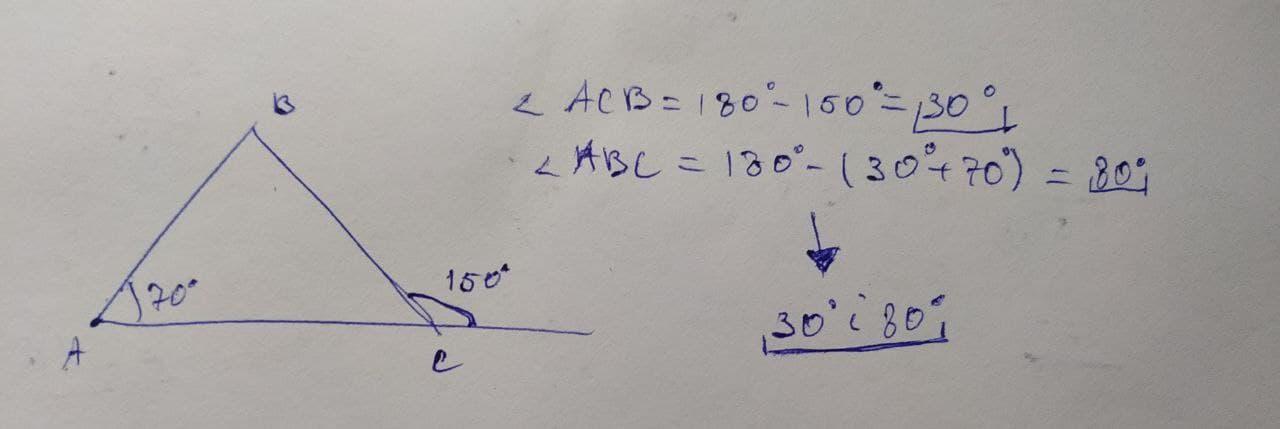 B
∠ ACB = 180° - 150° = 30°
∠ ABC = 180° - (30° + 70°) = 80°
70°
150°
30° i 80°
A
C